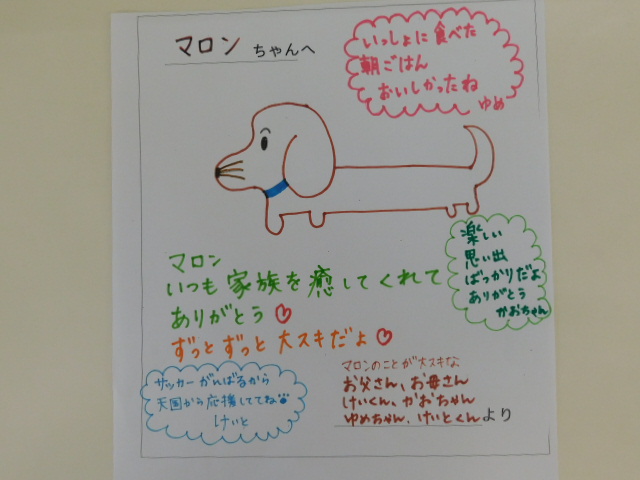 マロン ちゃんへ
いっしょに食べた
朝ごはん
おいしかったね
ゆめ
楽しい
思い出
ばっかりだよ
ありがとう
かおちゃん
マロン
いつも家族を癒してくれて
ありがとう♡
ずっとずっと大スキだよ♡
サッカーがんばるから
天国から応援しててね
けいと
マロンのことが大スキな
お父さん、お母さん
けいくん、かおちゃん
ゆめちゃん、けいとくんより